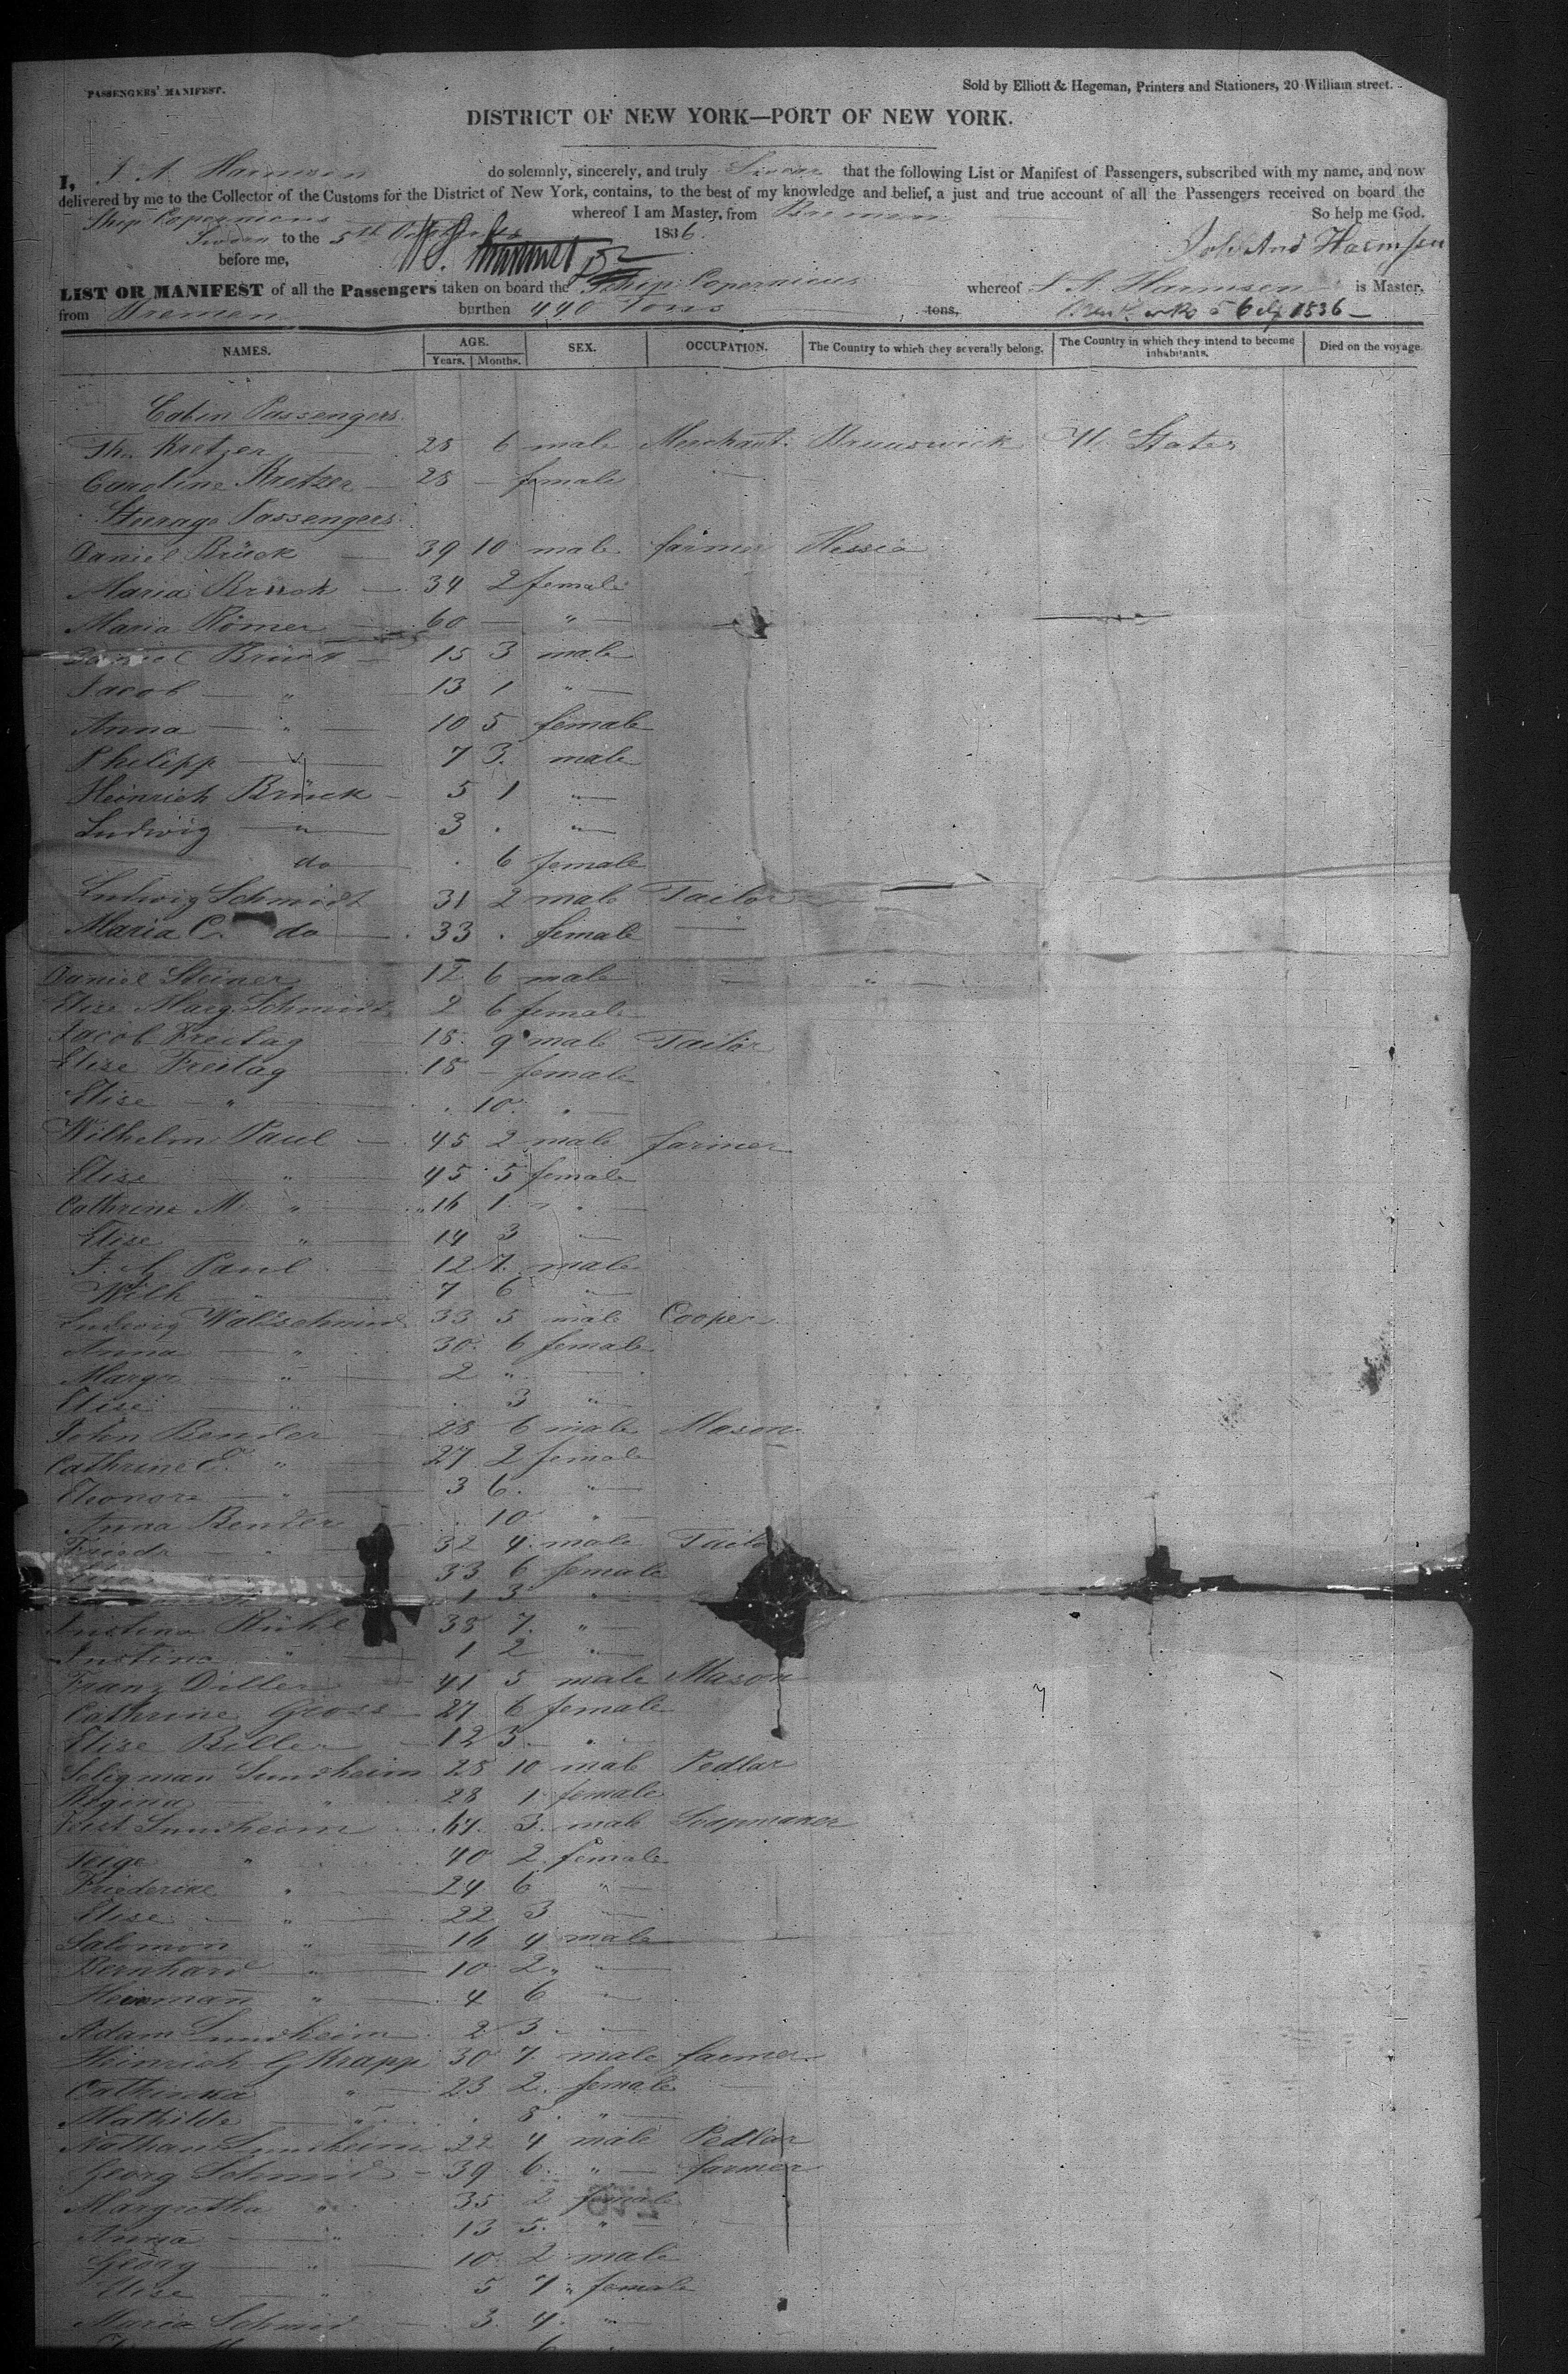 PASSENGERS' MANIFEST.
Sold by Elliott & Hegeman, Printers and Stationers, 20 William street.
DISTRICT OF NEW YORK—PORT OF NEW YORK.
I, J. A. Harmsen do solemnly, sincerely, and truly Swear that the following List or Manifest of Passengers, subscribed with my name, and now
delivered by me to the Collector of the Customs for the District of New York, contains, to the best of my knowledge and belief, a just and true account of all the Passengers received on board the
Ship Copernicus whereof I am Master, from Bremen So help me God.
Sworn to the 5th October 1836. Joh And Harmsen
before me,
LIST OR MANIFEST of all the Passengers taken on board the Ship Copernicus whereof J. A. Harmsen is Master,
from Bremen burthen 440 Tons tons, 1836
NAMES. AGE. SEX. OCCUPATION. The Country to which they severally belong. The Country in which they intend to become inhabitants. Died on the voyage.
Years. Months.
Cabin Passengers
Th. Kretzer 28 6 male Merchant Brunswick U. States
Caroline Kretzer 28 — female
Steerage Passengers
Daniel Brück 39 10 male farmer Hessia
Maria Brück 34 2 female
Maria Römer 60 — "
Daniel Brück 15 3 male
Jacob " 13 1 "
Anna " 10 5 female
Philipp " 7 3 male
Heinrich Brück 5 1 "
Ludwig " 3 . "
do . 6 female
Ludwig Schmidt 31 2 male Tailor
Maria C. do 33 . female
Daniel Steiner 12 6 male
Elise Marg Schmidt 2 6 female
Jacob Freitag 18 9 male Tailor
Elise Freitag 18 — female
Elise " . 10 "
Wilhelm Paul 45 2 male farmer
Elise " 45 5 female
Cathrine M " 16 1 "
Elise " 14 3 "
Paul 12 7 male
Wilh " 7 6 "
Ludwig Walschmid 33 5 male Cooper
Anna " 30 6 female
Margr " 2 "
Elise " 3 "
John Bender 28 6 male Mason
Cathrine E. " 27 2 female
Eleonore " 3 6 "
Anna Bender 10 "
Friedr " 32 4 male Tailor
33 6 female
1 3 "
Justina Rühl 38 7 "
Justina " 1 2 "
Franz Diller 41 5 male Mason
Cathrine Gross 27 6 female
Elise 12 3 "
Seligman Sundheim 28 10 male Pedlar
Regina " 28 1 female
Sundheim 3 male
" 40 2 female
Friederike " 24 6 "
Elise " 22 3 "
Salomon " 16 4 male
Bernhard " 10 2 "
Heineman " 4 6 "
Adam Sundheim 2 3 "
Heinrich G Krapp 30 7 male farmer
Cathinka " 23 2 female
Mathilde " . 8 "
Nathan Sundheim 22 4 male Pedlar
Georg Schmid 39 6 " farmer
Margretha " 35 2 female
Anna " 13 5 "
Georg " 10 2 male
Elise " 5 7 female
Maria Schmid 3 4 "
6